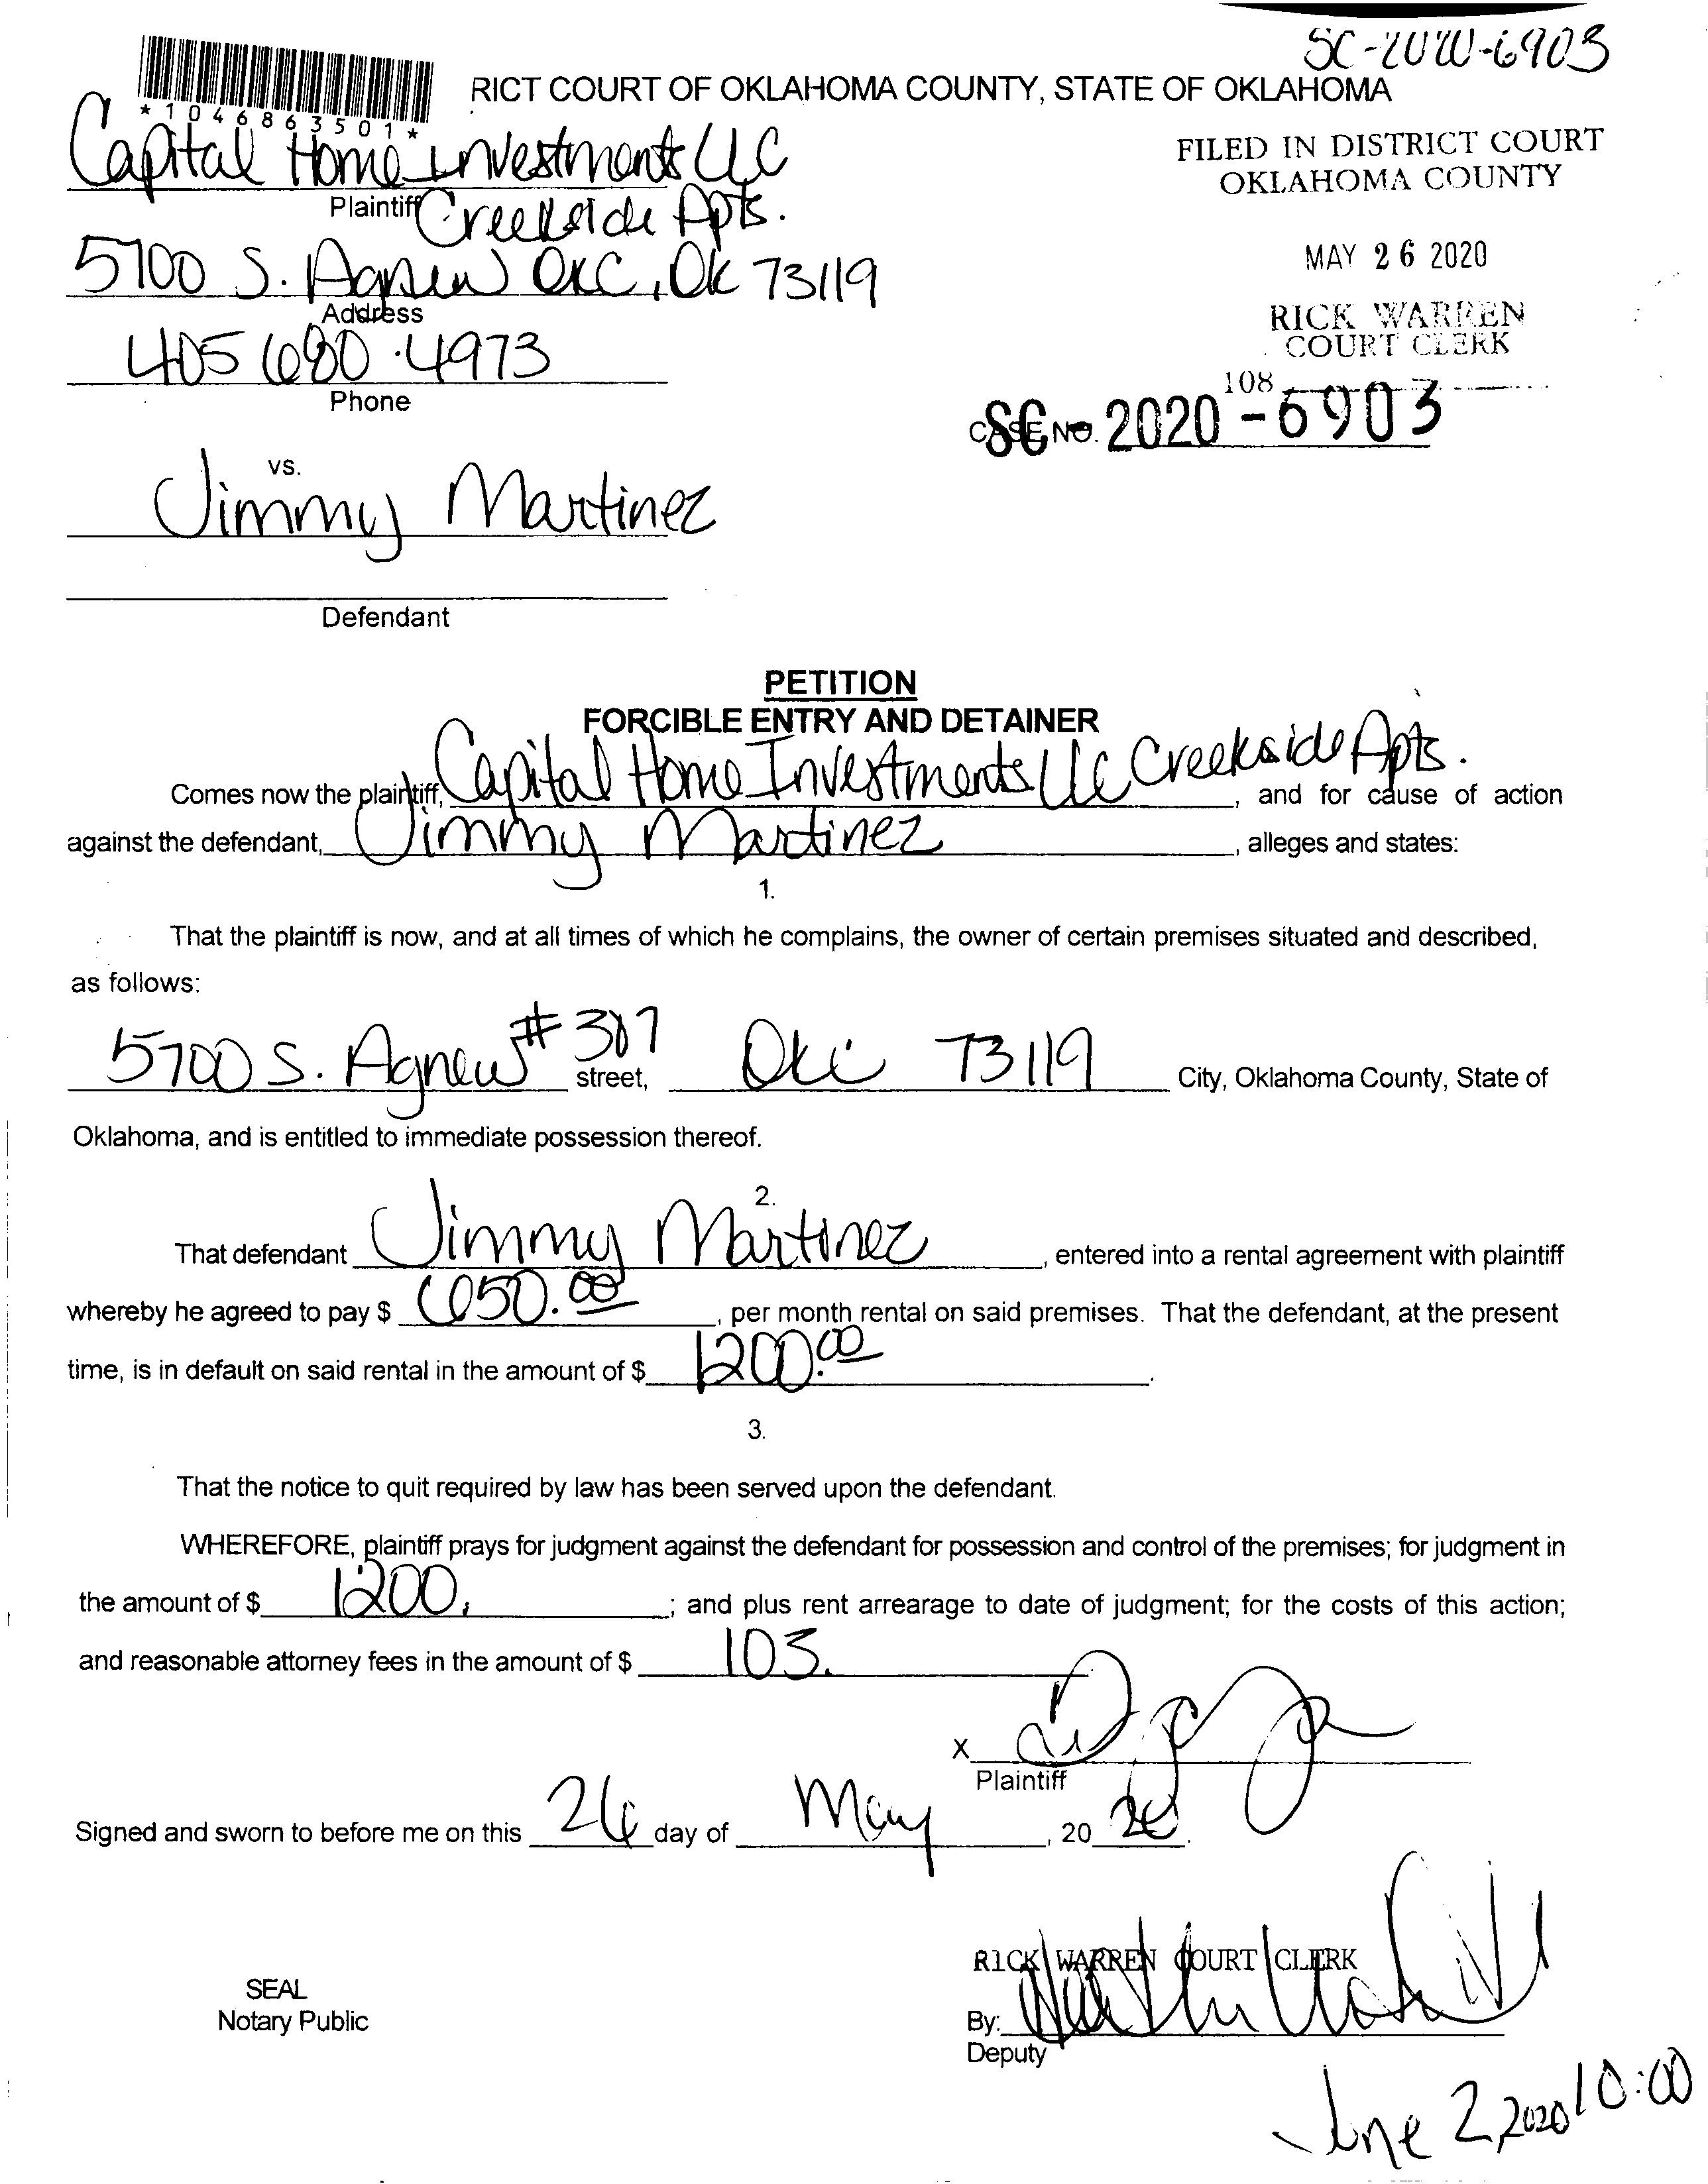 SC-2020-6903
RICT COURT OF OKLAHOMA COUNTY, STATE OF OKLAHOMA
*1046863501*
Capital Home Investments LLC
Plaintiff Creekside Apts.
5700 S. Agnew OKC, OK 73119
Address
405 680-4973
Phone
FILED IN DISTRICT COURT
OKLAHOMA COUNTY
MAY 26 2020
RICK WARREN
COURT CLERK
108
CASE NO. SC-2020-6903
vs.
Jimmy Martinez
Defendant
PETITION
FORCIBLE ENTRY AND DETAINER
Comes now the plaintiff, Capital Home Investments LLC Creekside Apts. , and for cause of action
against the defendant, Jimmy Martinez , alleges and states:
1.
That the plaintiff is now, and at all times of which he complains, the owner of certain premises situated and described,
as follows:
5700 S. Agnew #307 street, OKC 73119 City, Oklahoma County, State of
Oklahoma, and is entitled to immediate possession thereof.
2.
That defendant Jimmy Martinez , entered into a rental agreement with plaintiff
whereby he agreed to pay $ 650.00 , per month rental on said premises. That the defendant, at the present
time, is in default on said rental in the amount of $ 1200.00 .
3.
That the notice to quit required by law has been served upon the defendant.
WHEREFORE, plaintiff prays for judgment against the defendant for possession and control of the premises; for judgment in
the amount of $ 1200. ; and plus rent arrearage to date of judgment; for the costs of this action;
and reasonable attorney fees in the amount of $ 103.
X
Plaintiff
Signed and sworn to before me on this 26 day of May , 20 20 .
RICK WARREN COURT CLERK
SEAL
Notary Public
By:
Deputy
June 2, 2020 10:00